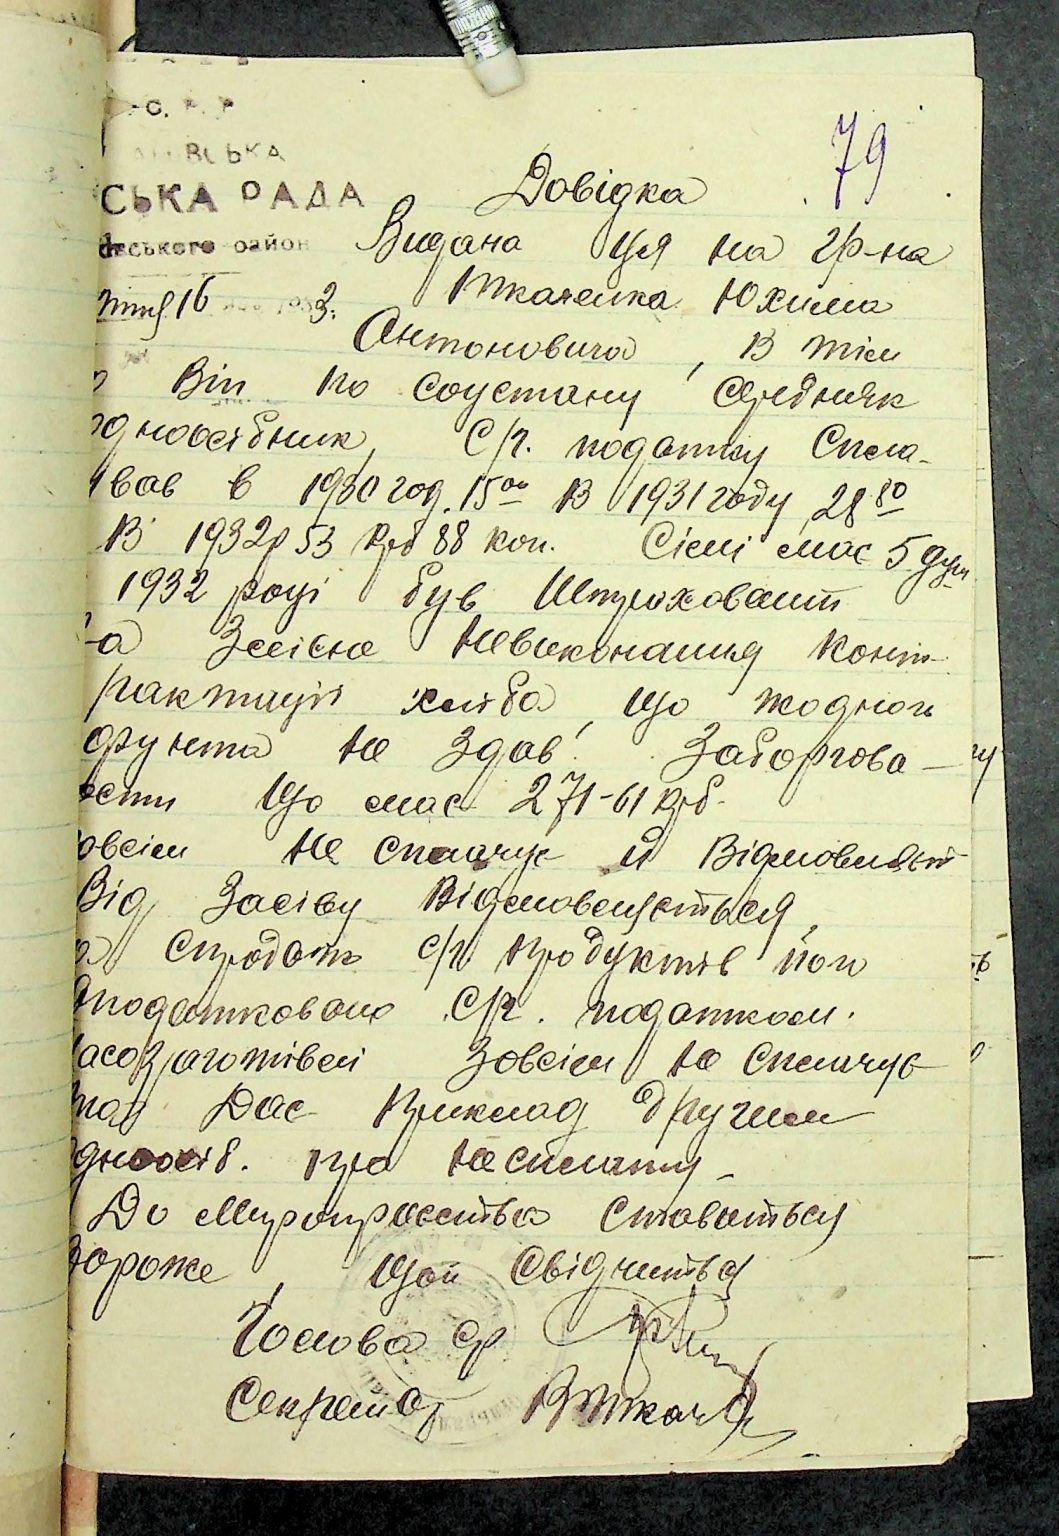 С. Р. Р
ВСЬКА
СЬКА РАДА
ського район
16 3.
79
Довідка
Видана ця на гр-на
Ткаченка Юхима
Антоновича, в тім
Він по соустану середняк
дноосібник, С/г. податку Спла-
вав в 1930 год. 15 оо в 1931 году 28 80
В 1932р 53 крб 88 коп. Сімі має 5 душ
1932 році був Штрахований
-а Злісне Невиконання конт-
рактації хліба, що жодного
фунта не здав. Заборгова-
ости що має 271-61 крб.
овсім не сплачує й Відмовляєт
Від Засіву Відмовляється,
а Спродать с/г продуктів його
оподатковано С/г. податком.
асозаготівелі Зовсім не сплачує
Дає приклад другим
дноосіб. про несплату
До мироприємства ставиться
вороже, що й свідчиться
Голова ср
Секретар ВТкач